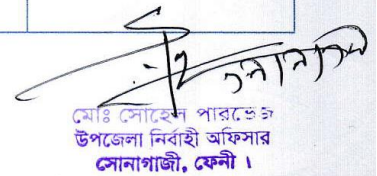 মোঃ সোহেল পারভেজ
উপজেলা নির্বাহী অফিসার
সোনাগাজী, ফেনী ।